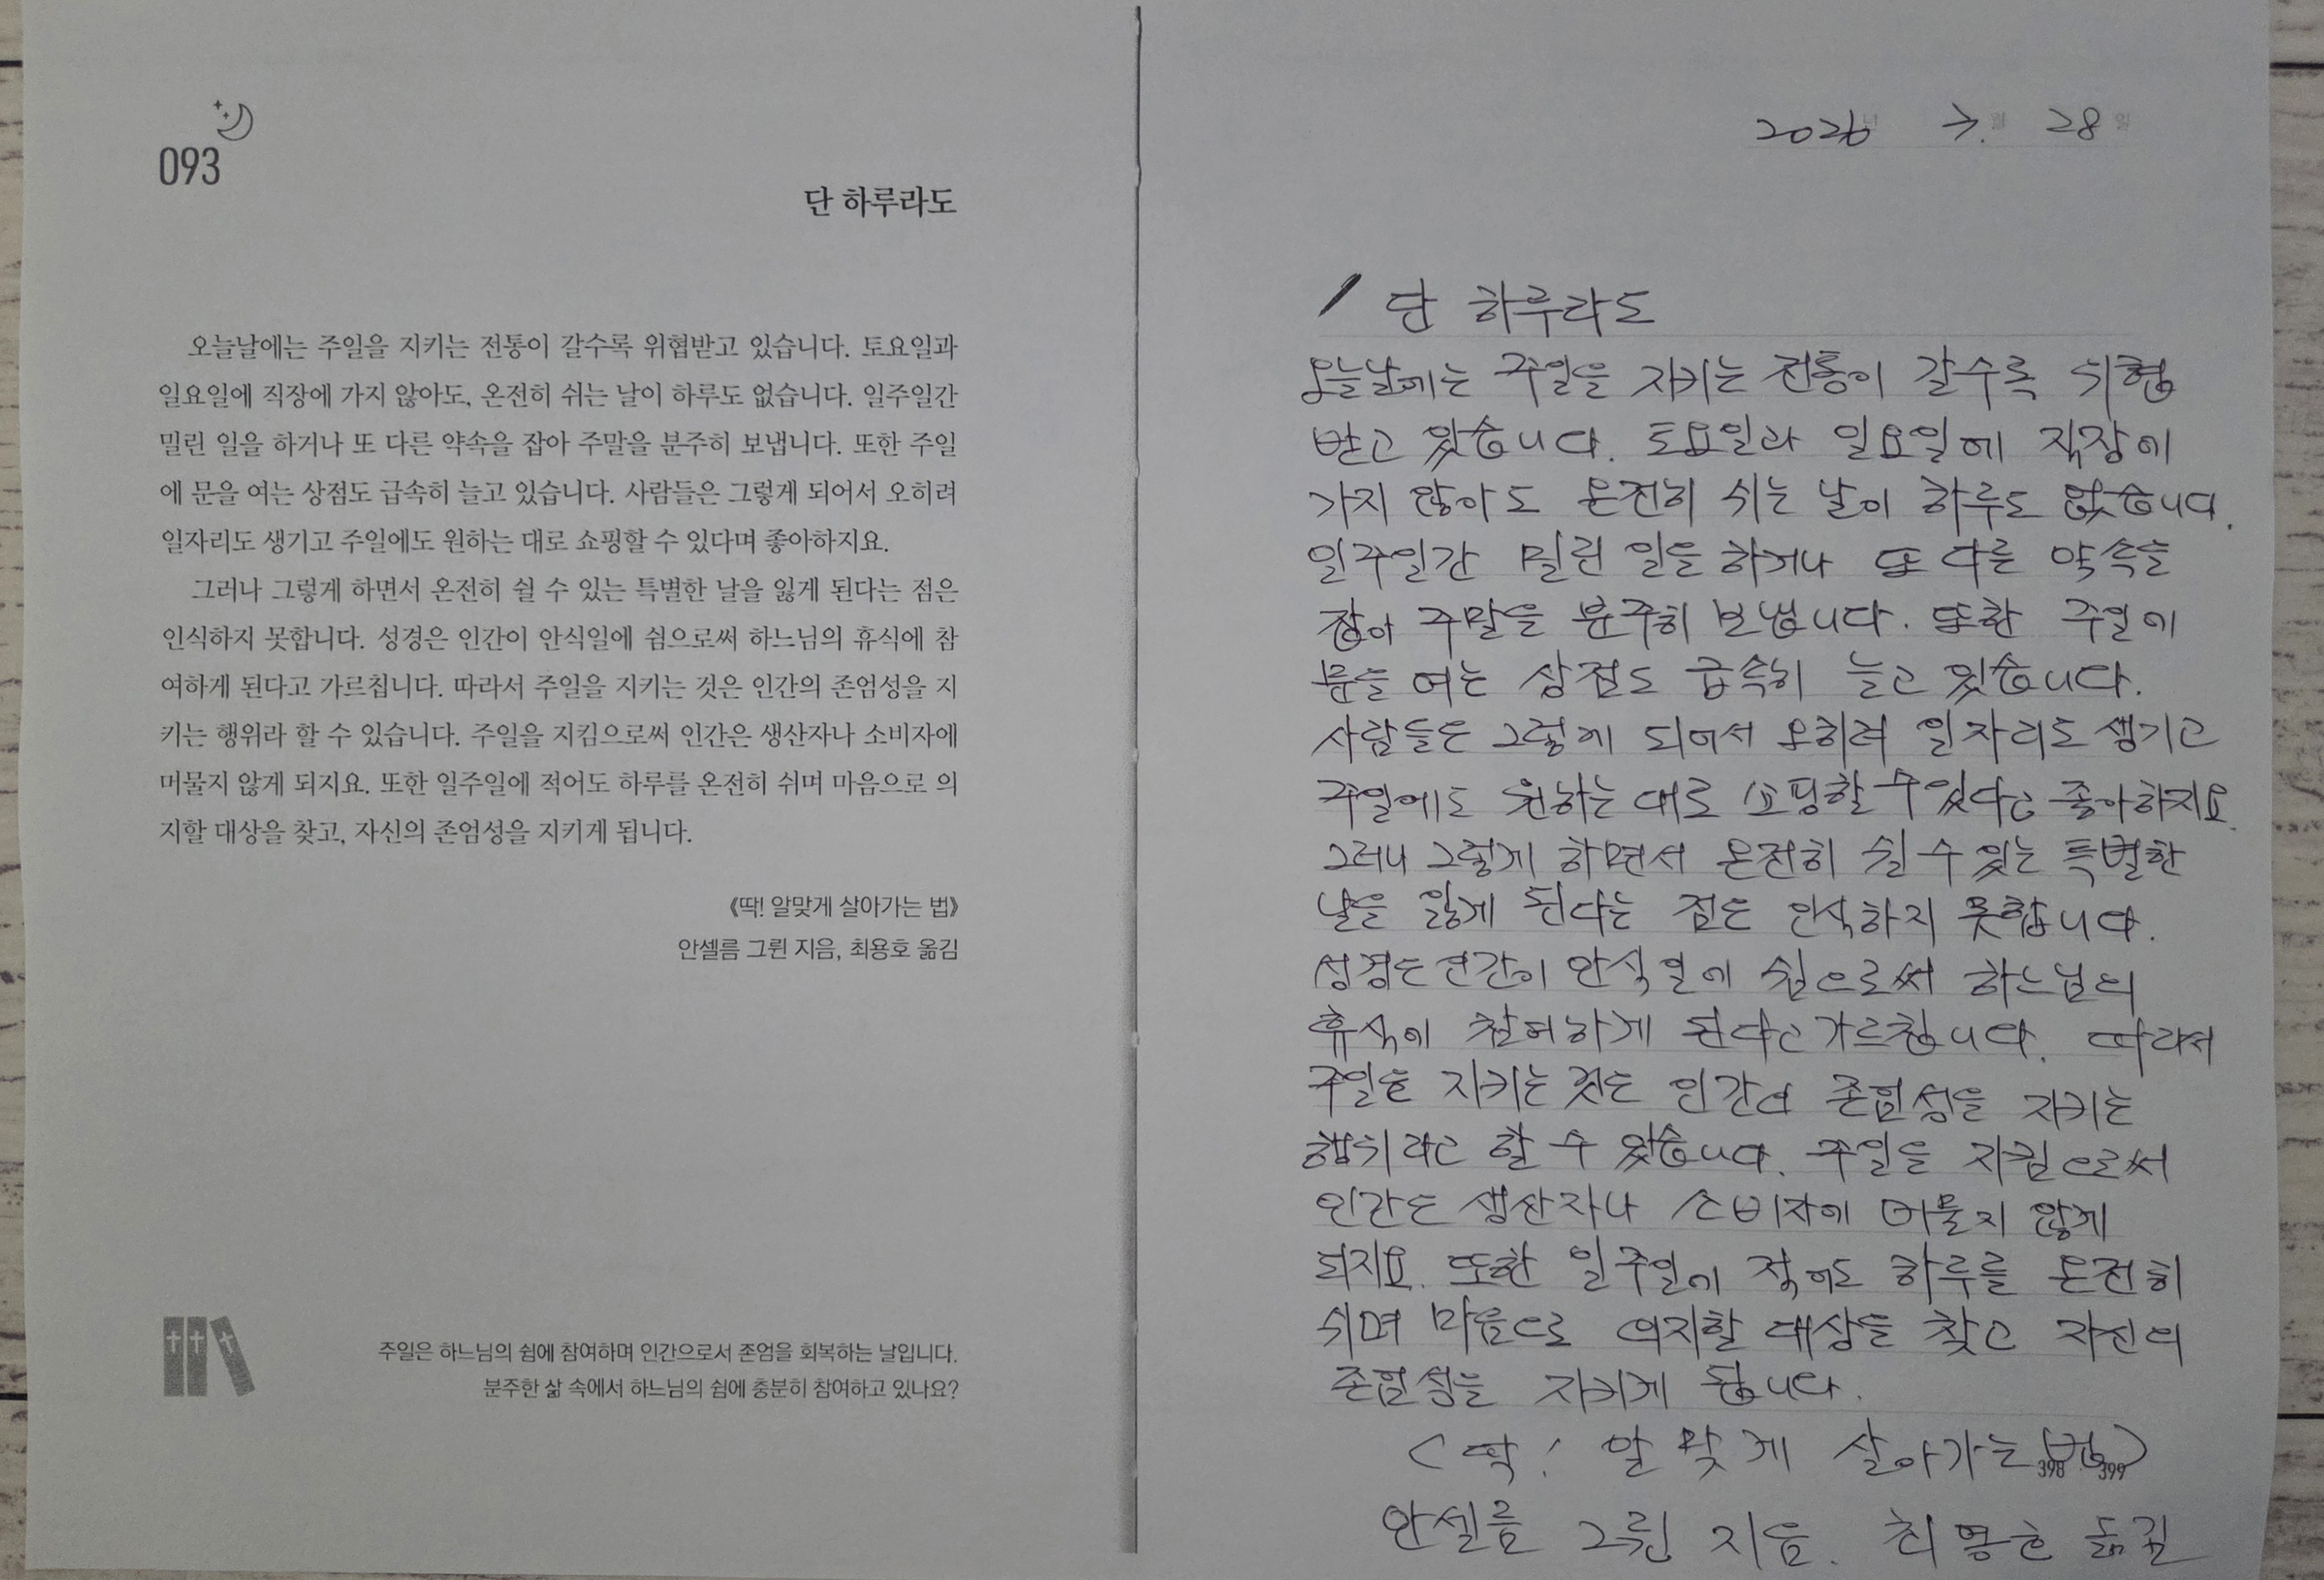 093
단 하루라도
오늘날에는 주일을 지키는 전통이 갈수록 위협받고 있습니다. 토요일과
일요일에 직장에 가지 않아도, 온전히 쉬는 날이 하루도 없습니다. 일주일간
밀린 일을 하거나 또 다른 약속을 잡아 주말을 분주히 보냅니다. 또한 주일
에 문을 여는 상점도 급속히 늘고 있습니다. 사람들은 그렇게 되어서 오히려
일자리도 생기고 주일에도 원하는 대로 쇼핑할 수 있다며 좋아하지요.
그러나 그렇게 하면서 온전히 쉴 수 있는 특별한 날을 잃게 된다는 점은
인식하지 못합니다. 성경은 인간이 안식일에 쉼으로써 하느님의 휴식에 참
여하게 된다고 가르칩니다. 따라서 주일을 지키는 것은 인간의 존엄성을 지
키는 행위라 할 수 있습니다. 주일을 지킴으로써 인간은 생산자나 소비자에
머물지 않게 되지요. 또한 일주일에 적어도 하루를 온전히 쉬며 마음으로 의
지할 대상을 찾고, 자신의 존엄성을 지키게 됩니다.
《딱! 알맞게 살아가는 법》
안셀름 그륀 지음, 최용호 옮김
주일은 하느님의 쉼에 참여하며 인간으로서 존엄을 회복하는 날입니다.
분주한 삶 속에서 하느님의 쉼에 충분히 참여하고 있나요?
2026년 7.월 28일
단 하루라도
오늘날에는 주일을 지키는 전통이 갈수록 위협
받고 있습니다. 토요일과 일요일에 직장에
가지 않아도 온전히 쉬는 날이 하루도 없습니다.
일주일간 밀린 일을 하거나 또 다른 약속을
잡아 주말을 분주히 보냅니다. 또한 주일에
문을 여는 상점도 급속히 늘고 있습니다.
사람들은 그렇게 되어서 오히려 일자리도 생기고
주일에도 원하는 대로 쇼핑할 수 있다고 좋아하지요.
그러나 그렇게 하면서 온전히 쉴 수 있는 특별한
날을 잃게 된다는 점은 인식하지 못합니다.
성경은 인간이 안식일에 쉼으로써 하느님의
휴식에 참여하게 된다고 가르칩니다. 따라서
주일을 지키는 것은 인간의 존엄성을 지키는
행위라고 할 수 있습니다. 주일을 지킴으로써
인간은 생산자나 소비자에 머물지 않게
되지요. 또한 일주일에 적어도 하루를 온전히
쉬며 마음으로 의지할 대상을 찾고 자신의
존엄성을 지키게 됩니다.
(딱! 알맞게 살아가는 법)
398 · 399
안셀름 그륀 지음. 최용호 옮김